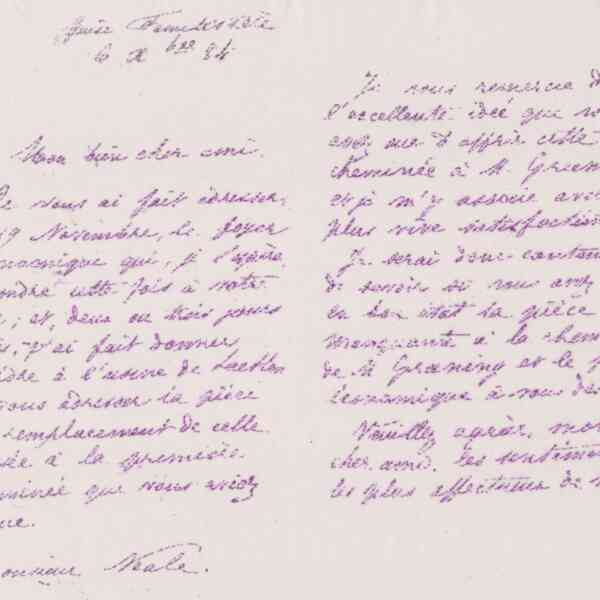 Guise Familistère
6 Xbre 84
Mon bien cher ami.
Je vous ai fait adresser,
19 Novembre, le foyer
onomique qui, j'espère,
ondra cette fois à votre
; et, deux ou trois jours
s, j'ai fait donner
dre à l'usine de Laeken
vous adresser la pièce
remplacement de celle
sée à la première
minée que vous aviez
ue.
onsieur Neale.
Je vous remercie d
l'excellente idée que v
avez eue d'offrir cette
cheminée à M. Green
et je m'y associe avec
plus vive satisfaction
Je serai donc content
de savoir si vous avez
en bon état la pièce
manquante à la chem
de M Greening et le f
économique à vous des
Veuillez agréer, mon
cher ami, les sentimen
les plus affectueux de